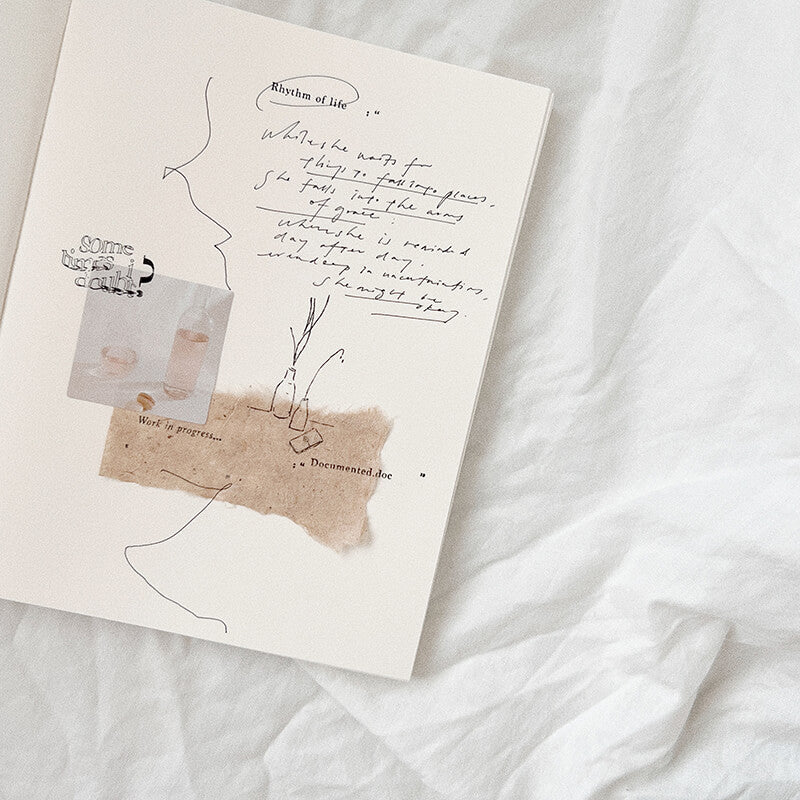 Rhythm of life
; "
While she waits for
things to fall into places,
She falls into the arms
of grace.
Where she is reminded
day after day,
even deep in uncertainties,
She might be
okay.
some
times i
doubt
Work in progress...
; " Documented.doc "